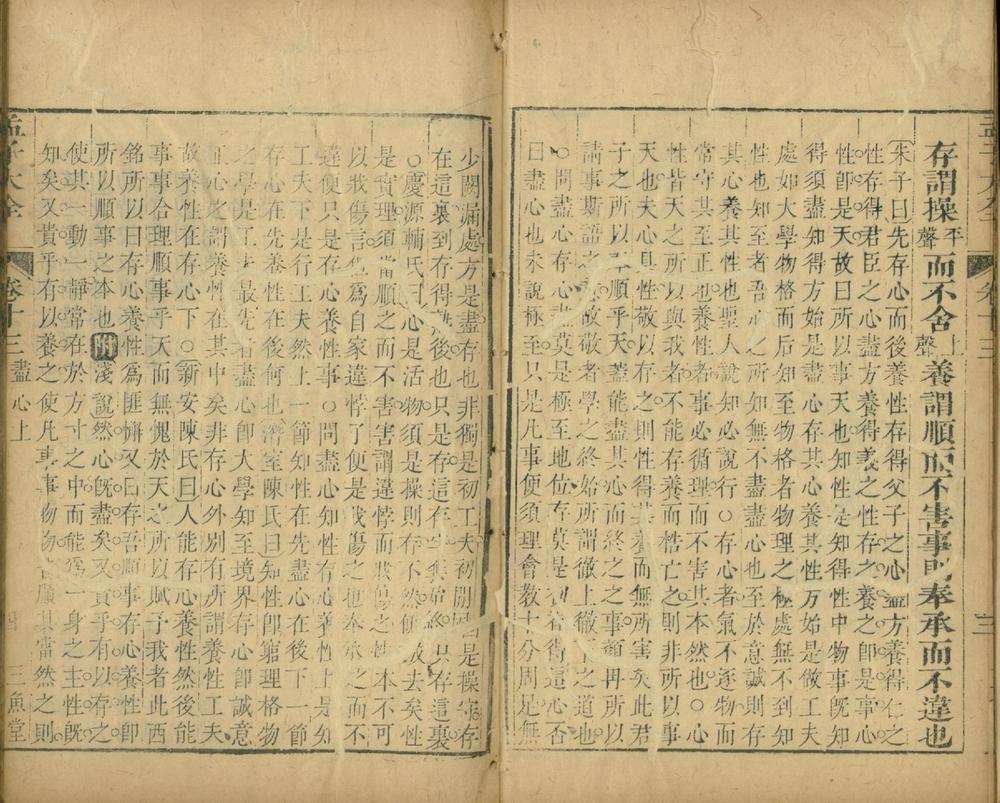 存謂操平聲而不舍上聲養謂順而不害事則奉承而不違也
朱子曰先存心而後養性存得父子之心盡方養得仁之
性存得君臣之心盡方養得義之性存之養之卽是事心
性卽是天故曰所以事天也知性是知得性中物事旣知
得須盡知得方始是盡心存其心養其性方始是做工夫
處如大學物格而后知至物格者物理之極處無不到知
性也知至者吾心之所知無不盡盡心也至於意誠則存
其心養其性也聖人說知必說行○存心者氣不逐物而
常守其至正也養性者事必循理而不害其本然也○心
性皆天之所以與我者不能存養而梏亡之則非所以事
天也夫心具性敬以存之則性得其養而無所害矣此君
子之所以順乎天蓋能盡其心而終之之事顏冉所以
請事斯語之之終始所謂徹上徹下之道也
○問盡心存心盡莫是極至地位存莫是初存得這心否
曰盡心也未說極至只是凡事便須理會教十分周足無
少闕漏處方是盡存也非獨是初工夫初間固是操守存
在這裏到存得熟後也只是存這存無終始只存這裏
○慶源輔氏曰心是活物須是操則存不然便放去矣性
是實理須當順之而不害害謂違悖而戕傷之性本不可
以戕傷言但爲自家違悖了便是戕傷之也奉承之而不
違便只是存心養性事○問盡心知性存心養性
工夫知下是行工夫然上一節知性在先盡心在後下一節
存心在先養性在後何也潛室陳氏曰知性卽窮理格物
之學是工夫最先者盡心卽大學知至境界存心卽誠意
正心之謂養性在其中矣非存心外別有所謂養性工夫
故養性在存心下○新安陳氏曰人能存心養性然後能
事事合理順事乎天而無愧於天之所以賦予我者此西
銘所以曰存心養性爲匪懈又曰存吾順事存心養性卽
所以順事之本也附淺說然心旣盡矣又貴乎有以存之
使其一動一靜常在於方寸之中而能爲一身之主性旣
知矣又貴乎有以養之使凡事事物物皆順其當然之則
孟子大全 卷十三 盡心上 三魚堂